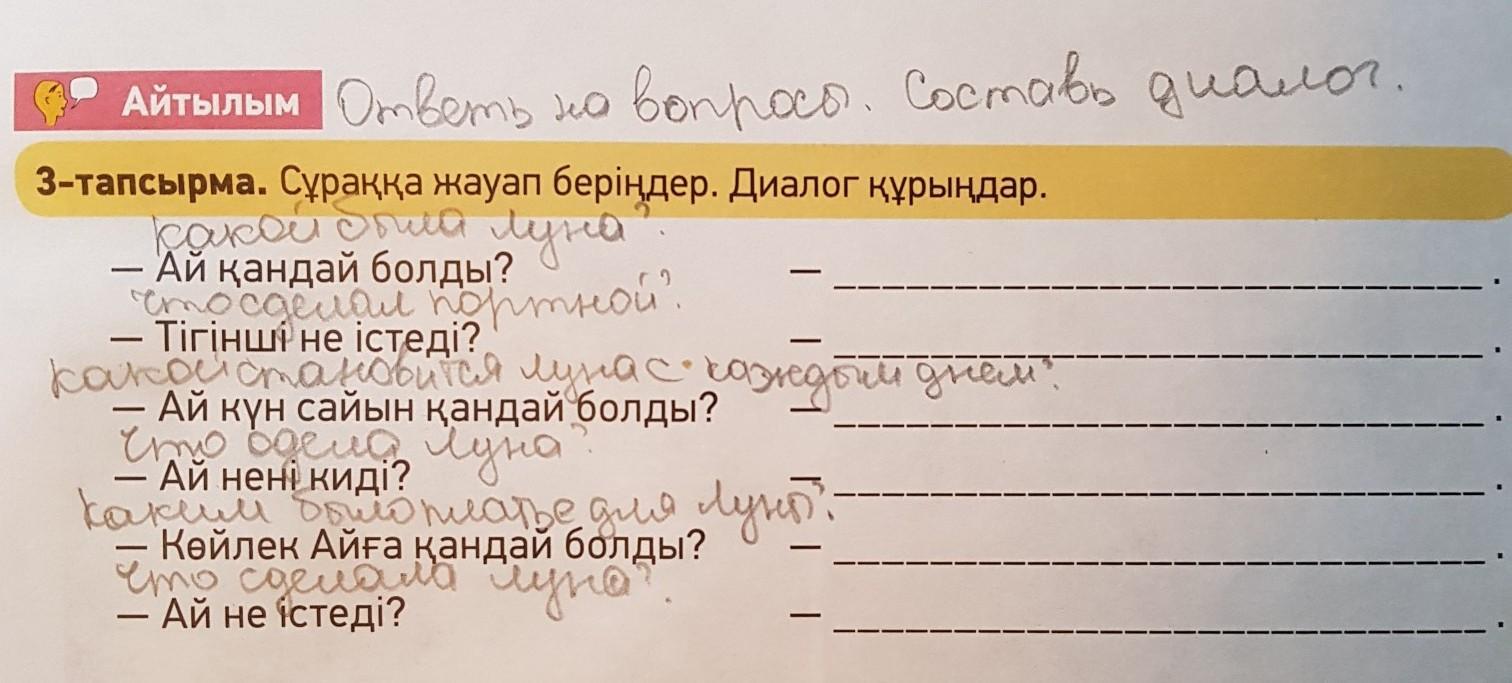 Айтылым Ответь на вопросы. Составь диалог.
3-тапсырма. Сұраққа жауап беріңдер. Диалог құрыңдар.
какой была луна?
— Ай қандай болды? — ____________.
что сделал портной?
— Тігінші не істеді? — ____________.
какой становится луна с каждым днем?
— Ай күн сайын қандай болды? — ____________.
что одела луна?
— Ай нені киді? — ____________.
каким было платье для луны?
— Көйлек Айға қандай болды? — ____________.
что сделала луна?
— Ай не істеді? — ____________.